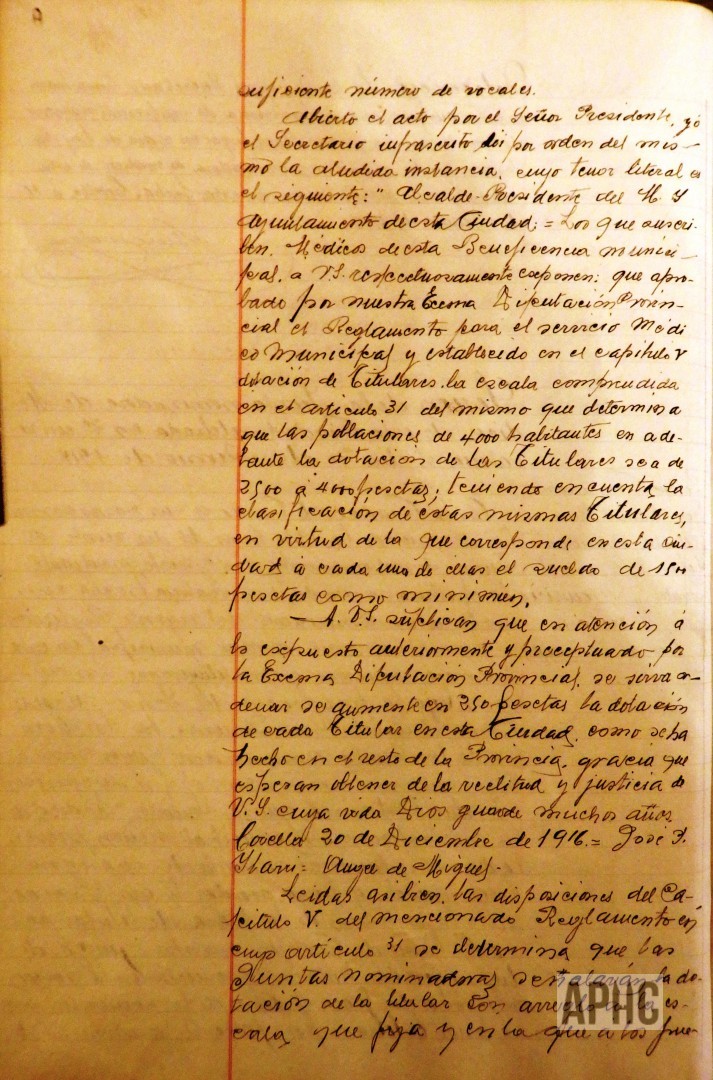 suficiente número de vocales.
Abierto el acto por el Señor Presidente, yó
el Secretario infrascrito leí por orden del mis-
mo la aludida instancia, cuyo tenor literal es
el seguiente: " Alcalde-Presidente del M. I
Ayuntamento de esta Ciudad: = Los que suscri-
ben, Médicos de esta Beneficencia munici-
pal, a V.S. respectuosamente exponen: que apro-
bado por nuestra Excma Diputación Provin-
cial el Reglamento para el servicio Médi
co Municipal y establecido en el capitulo V
dotación de Titulares, la escala comprendida
en el articulo 31 del mismo que determina
que las poblaciones de 4000 habitantes en ade-
lante la dotación de las Titulares sea de
2500 á 4000 pesetas; teniendo en cuenta la
clasificación de estas mismas Titulares,
en virtud de la que corresponde en esta ciu-
dad á cada una de ellas el sueldo de
pesetas como minimún,
A. V.S. suplican que en atención á
lo expuesto anteriormente y preceptuado por
la Excma Diputación Provincial, se sirva or-
denar se aumente en 250 pesetas la dotación
de cada Titular en esta Ciudad, como se ha
hecho en el resto de la Provincia, gracia que
esperan obtener de la rectitud y justicia de
V.S. cuya vida Dios guarde muchos años
Corella 20 de Diciembre de 1916. = José
= Angel de Miguel.
Leidas asi bien, las disposiciones del Ca-
pitulo V. del mencionado Reglamento en
cuyo artículo 31 se determina que las
Juntas nominadoras señalarán la do-
tación de la titular con arreglo a la es-
cala que fija y en la que a los pue-
APHC